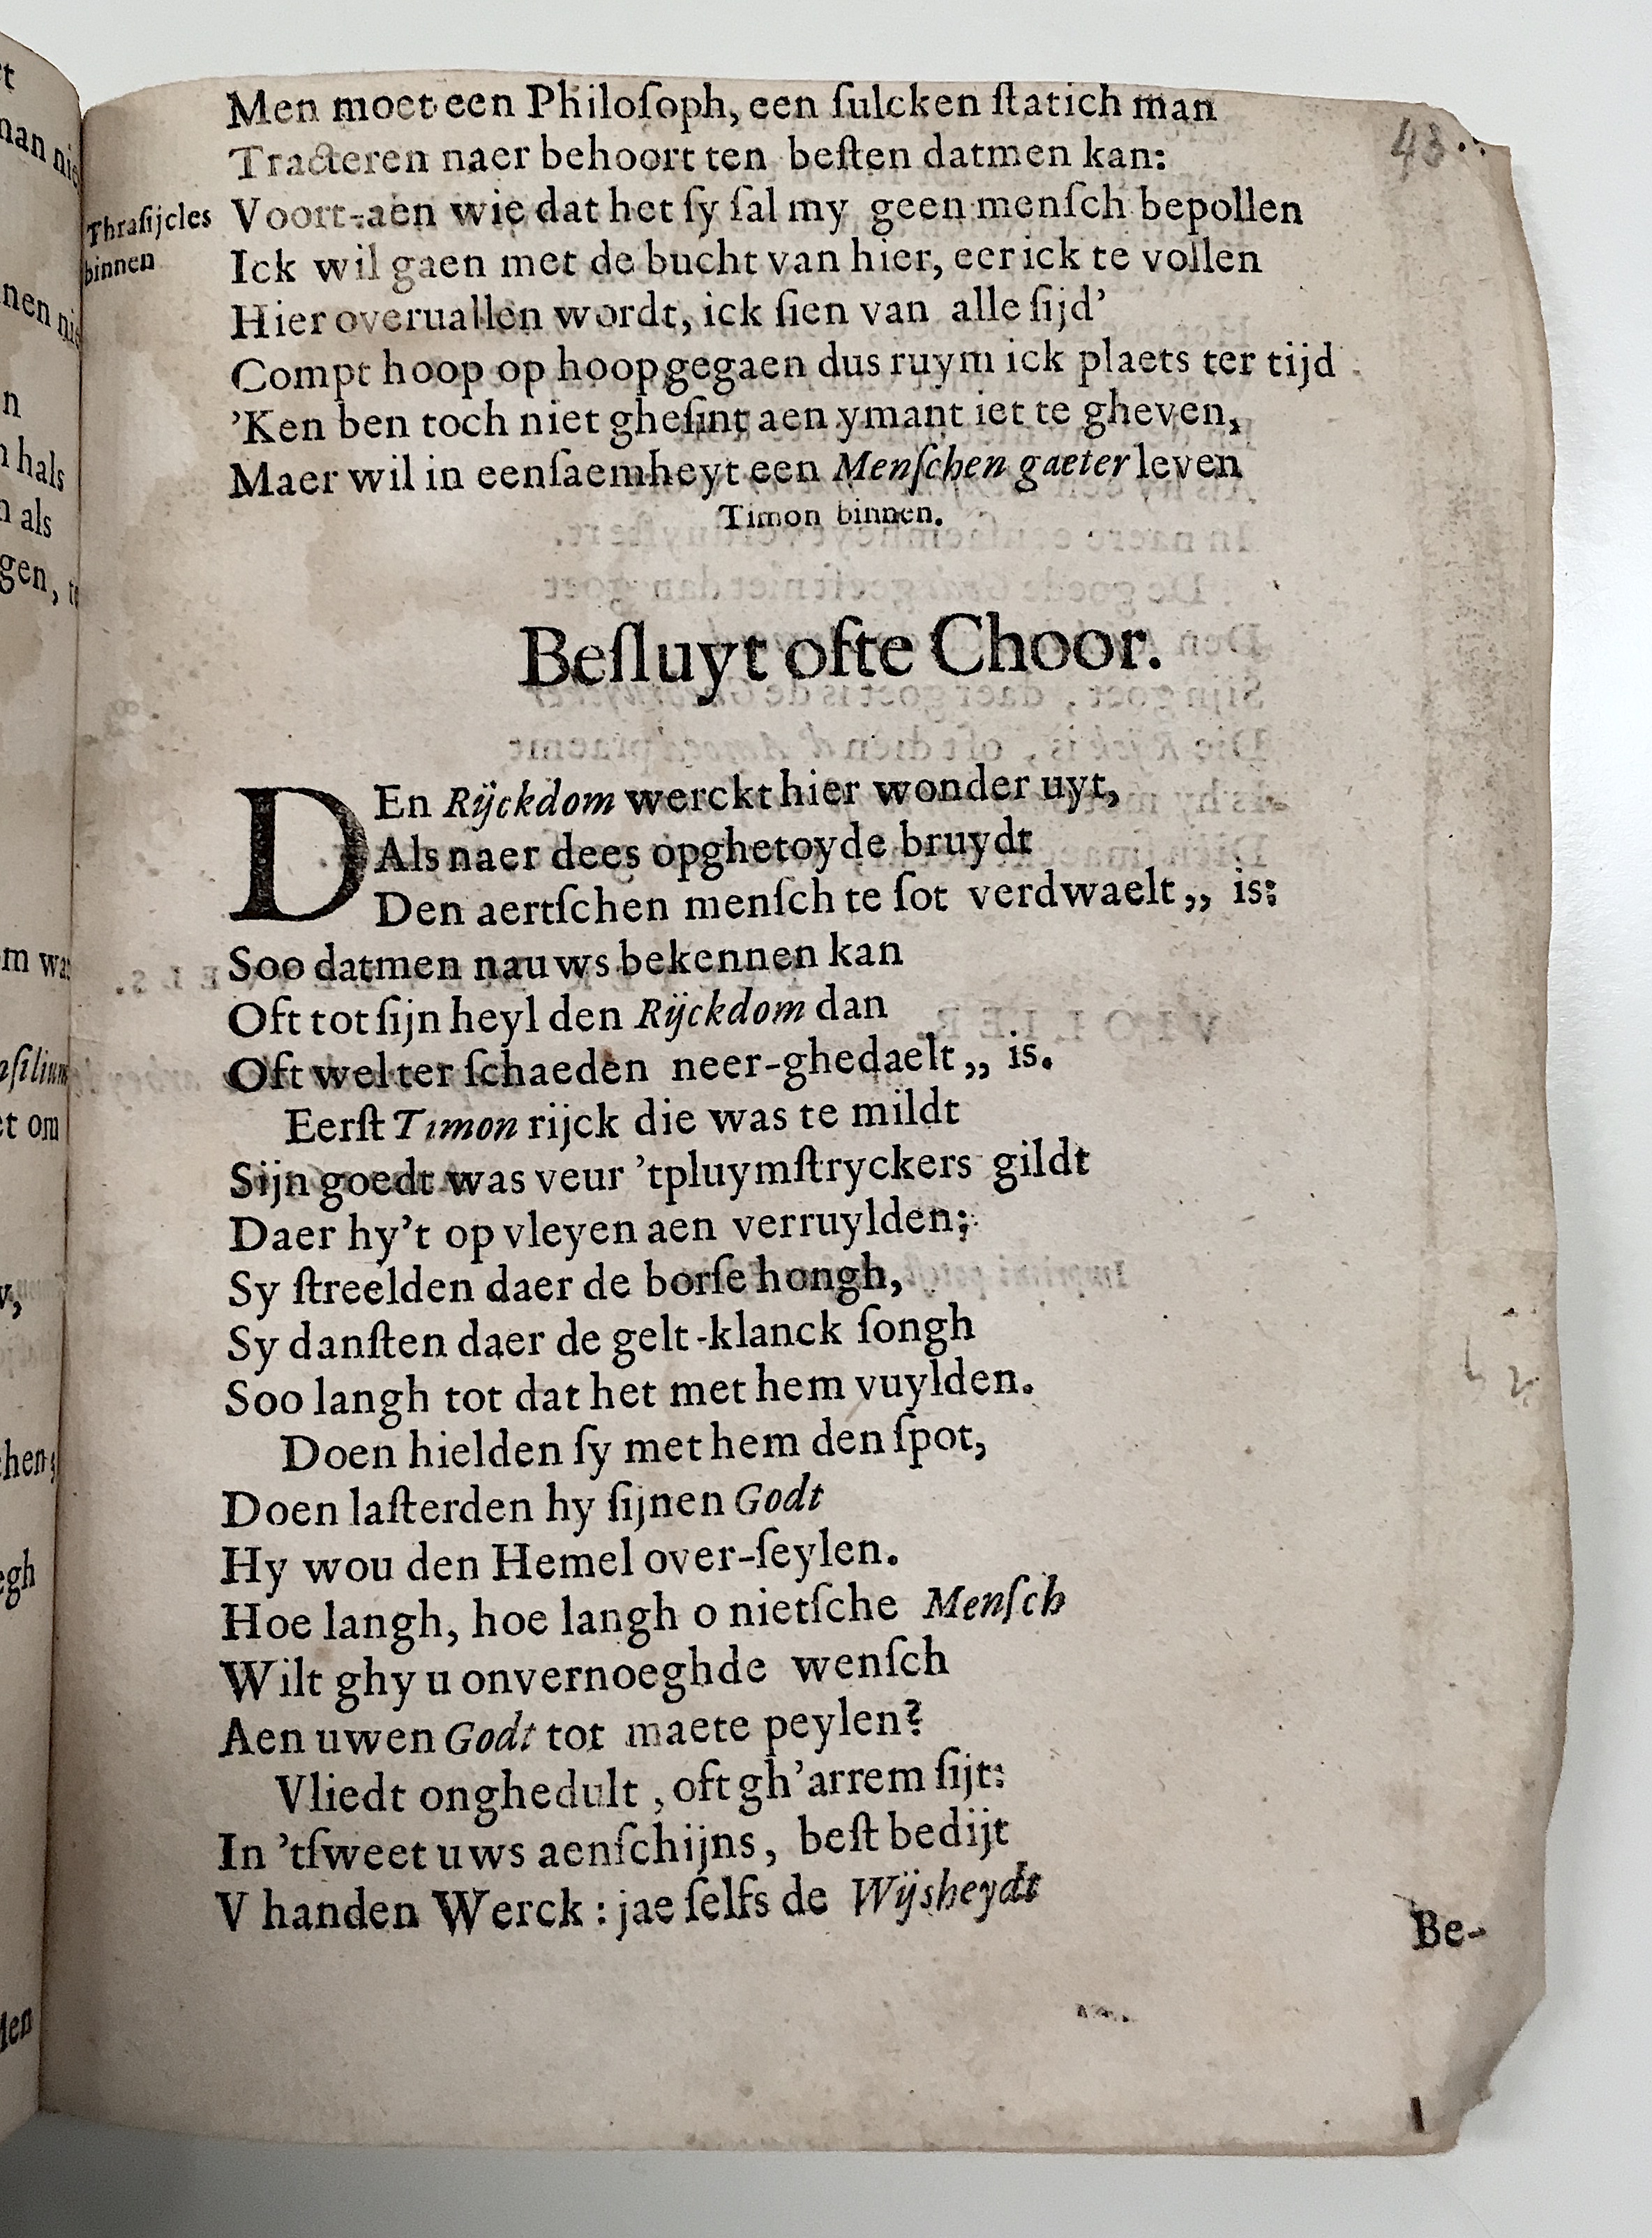 43
Men moet een Philoſoph, een ſulcken ſtatich man
Tracteren naer behoort ten beſten datmen kan:
Thraſijcles
binnen
Voort-aen wie dat het ſy ſal my geen menſch bepollen
Ick wil gaen met de bucht van hier, eer ick te vollen
Hier overuallen wordt, ick ſien van alle ſijd'
Compt hoop op hoop gegaen dus ruym ick plaets ter tijd
'Ken ben toch niet gheſint aen ymant iet te gheven,
Maer wil in eenſaemheyt een Menſchen gaeter leven
Timon binnen.
Beſluyt ofte Choor.
DEn Rijckdom werckt hier wonder uyt,
Als naer dees opghetoyde bruydt
Den aertſchen menſch te ſot verdwaelt,, is:
Soo datmen nauws bekennen kan
Oft tot ſijn heyl den Rijckdom dan
Oft wel ter ſchaeden neer-ghedaelt,, is.
Eerſt Timon rijck die was te mildt
Sijn goedt was veur 'tpluymſtryckers gildt
Daer hy't op vleyen aen verruylden;
Sy ſtreelden daer de borſe hongh,
Sy danſten daer de gelt-klanck ſongh
Soo langh tot dat het met hem vuylden.
Doen hielden ſy met hem den ſpot,
Doen laſterden hy ſijnen Godt
Hy wou den Hemel over-ſeylen.
Hoe langh, hoe langh o nietſche Menſch
Wilt ghy u onvernoeghde wenſch
Aen uwen Godt tot maete peylen?
Vliedt onghedult, oft gh'arrem ſijt:
In 'tſweet uws aenſchijns, beſt bedijt
V handen Werck: jae ſelfs de Wijsheydt
Be-